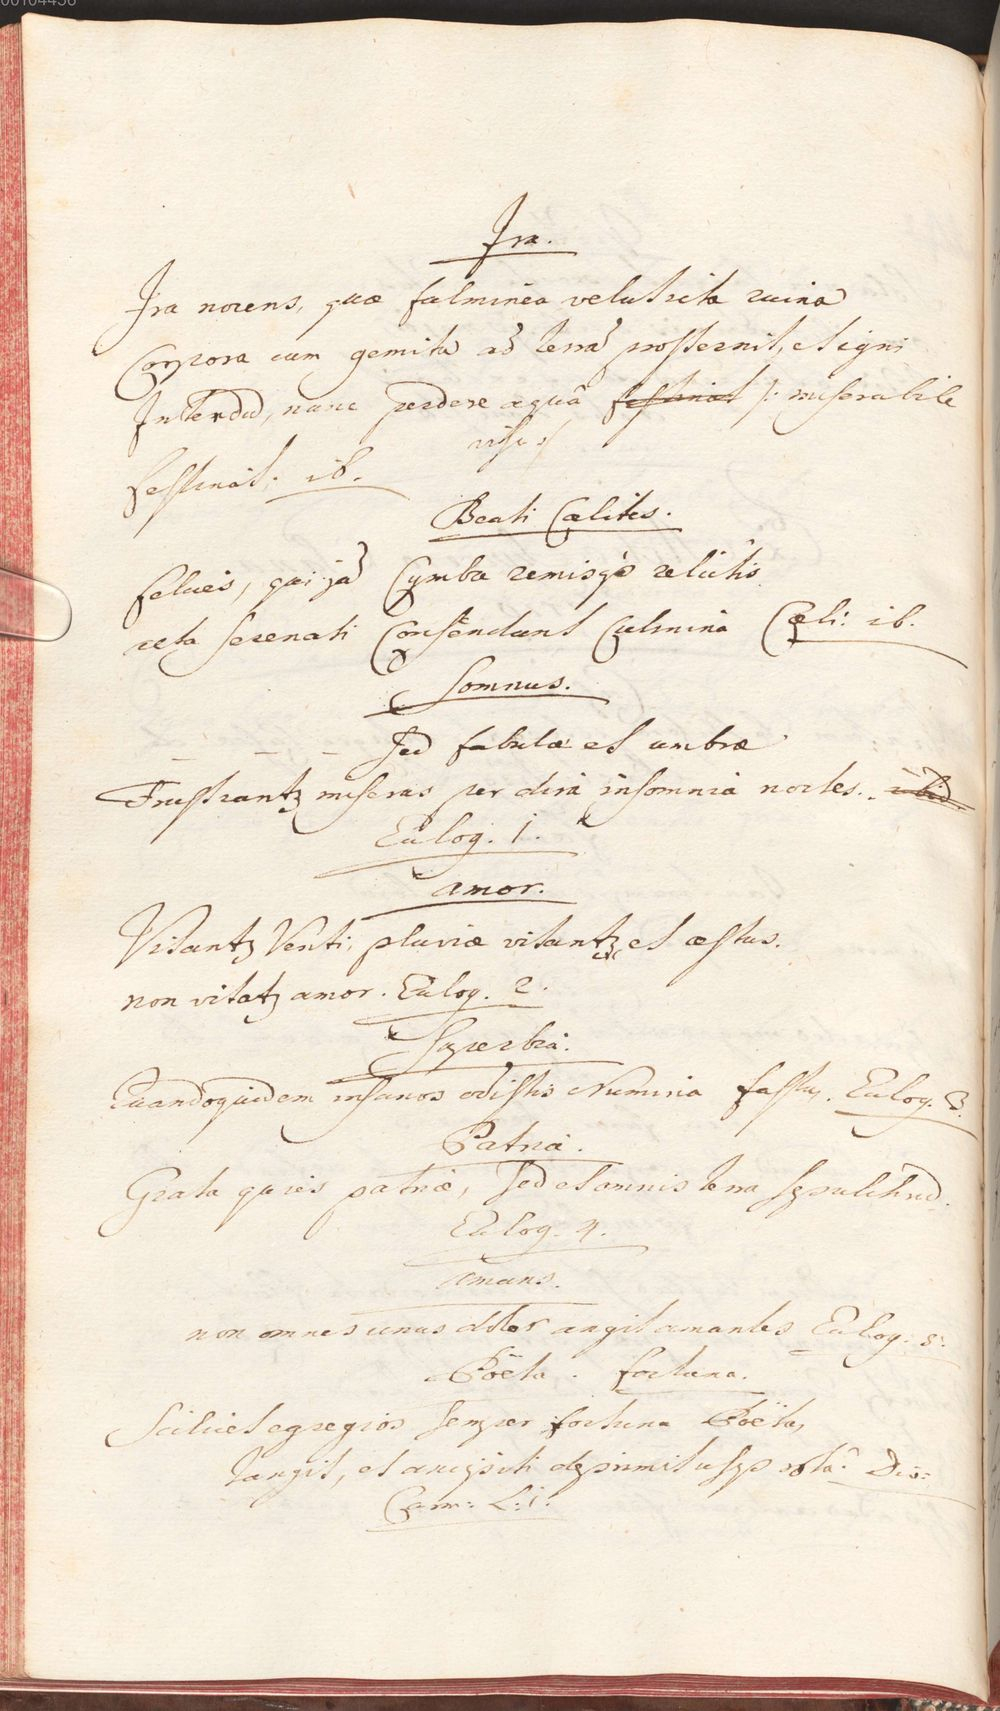 00104436
Ira.
Ira nocens, quæ fulminea velut icta ruina
Corpora cum gemitu ad terrã prosternit, et igni
Interdũ, nunc perdere aquã festinat /: miserabile
visu :/
festinat. ib.
Beati Cælites.
felices, qui jã Cymba remisq́ relictis
læta serenati Conscendunt Culmina Cæli. ib.
Somnus.
_ _ _ Sed fabulæ et umbræ
Frustrantur miseras per dira insomnia noctes. ibid
Eclog. 1.
amor.
Vitantur Venti, pluviæ vitantur, et æstus.
non vitatur amor. Eclog. 2.
Superbia.
Quandoquidem insanos odistis Numina fastus. Eclog. 3.
Patria.
Grata quies patriæ, sed et omnis terra sepulchrũ.
Eclog. 4.
amans.
non omnes unus dolor angit amantes Eclog. 5.
Poëta. fortuna.
Scilicet egregios semper fortuna Poëtas
Tangit, et ancipiti deprimit usq́ rotâ. Div:
Carm: L: 1.